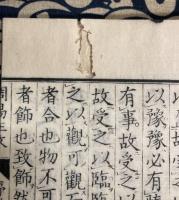 以豫豫必有隨
有事故受之以
故受之以臨臨
之以觀可觀而
者合也物不可
者飾也致飾然
周易